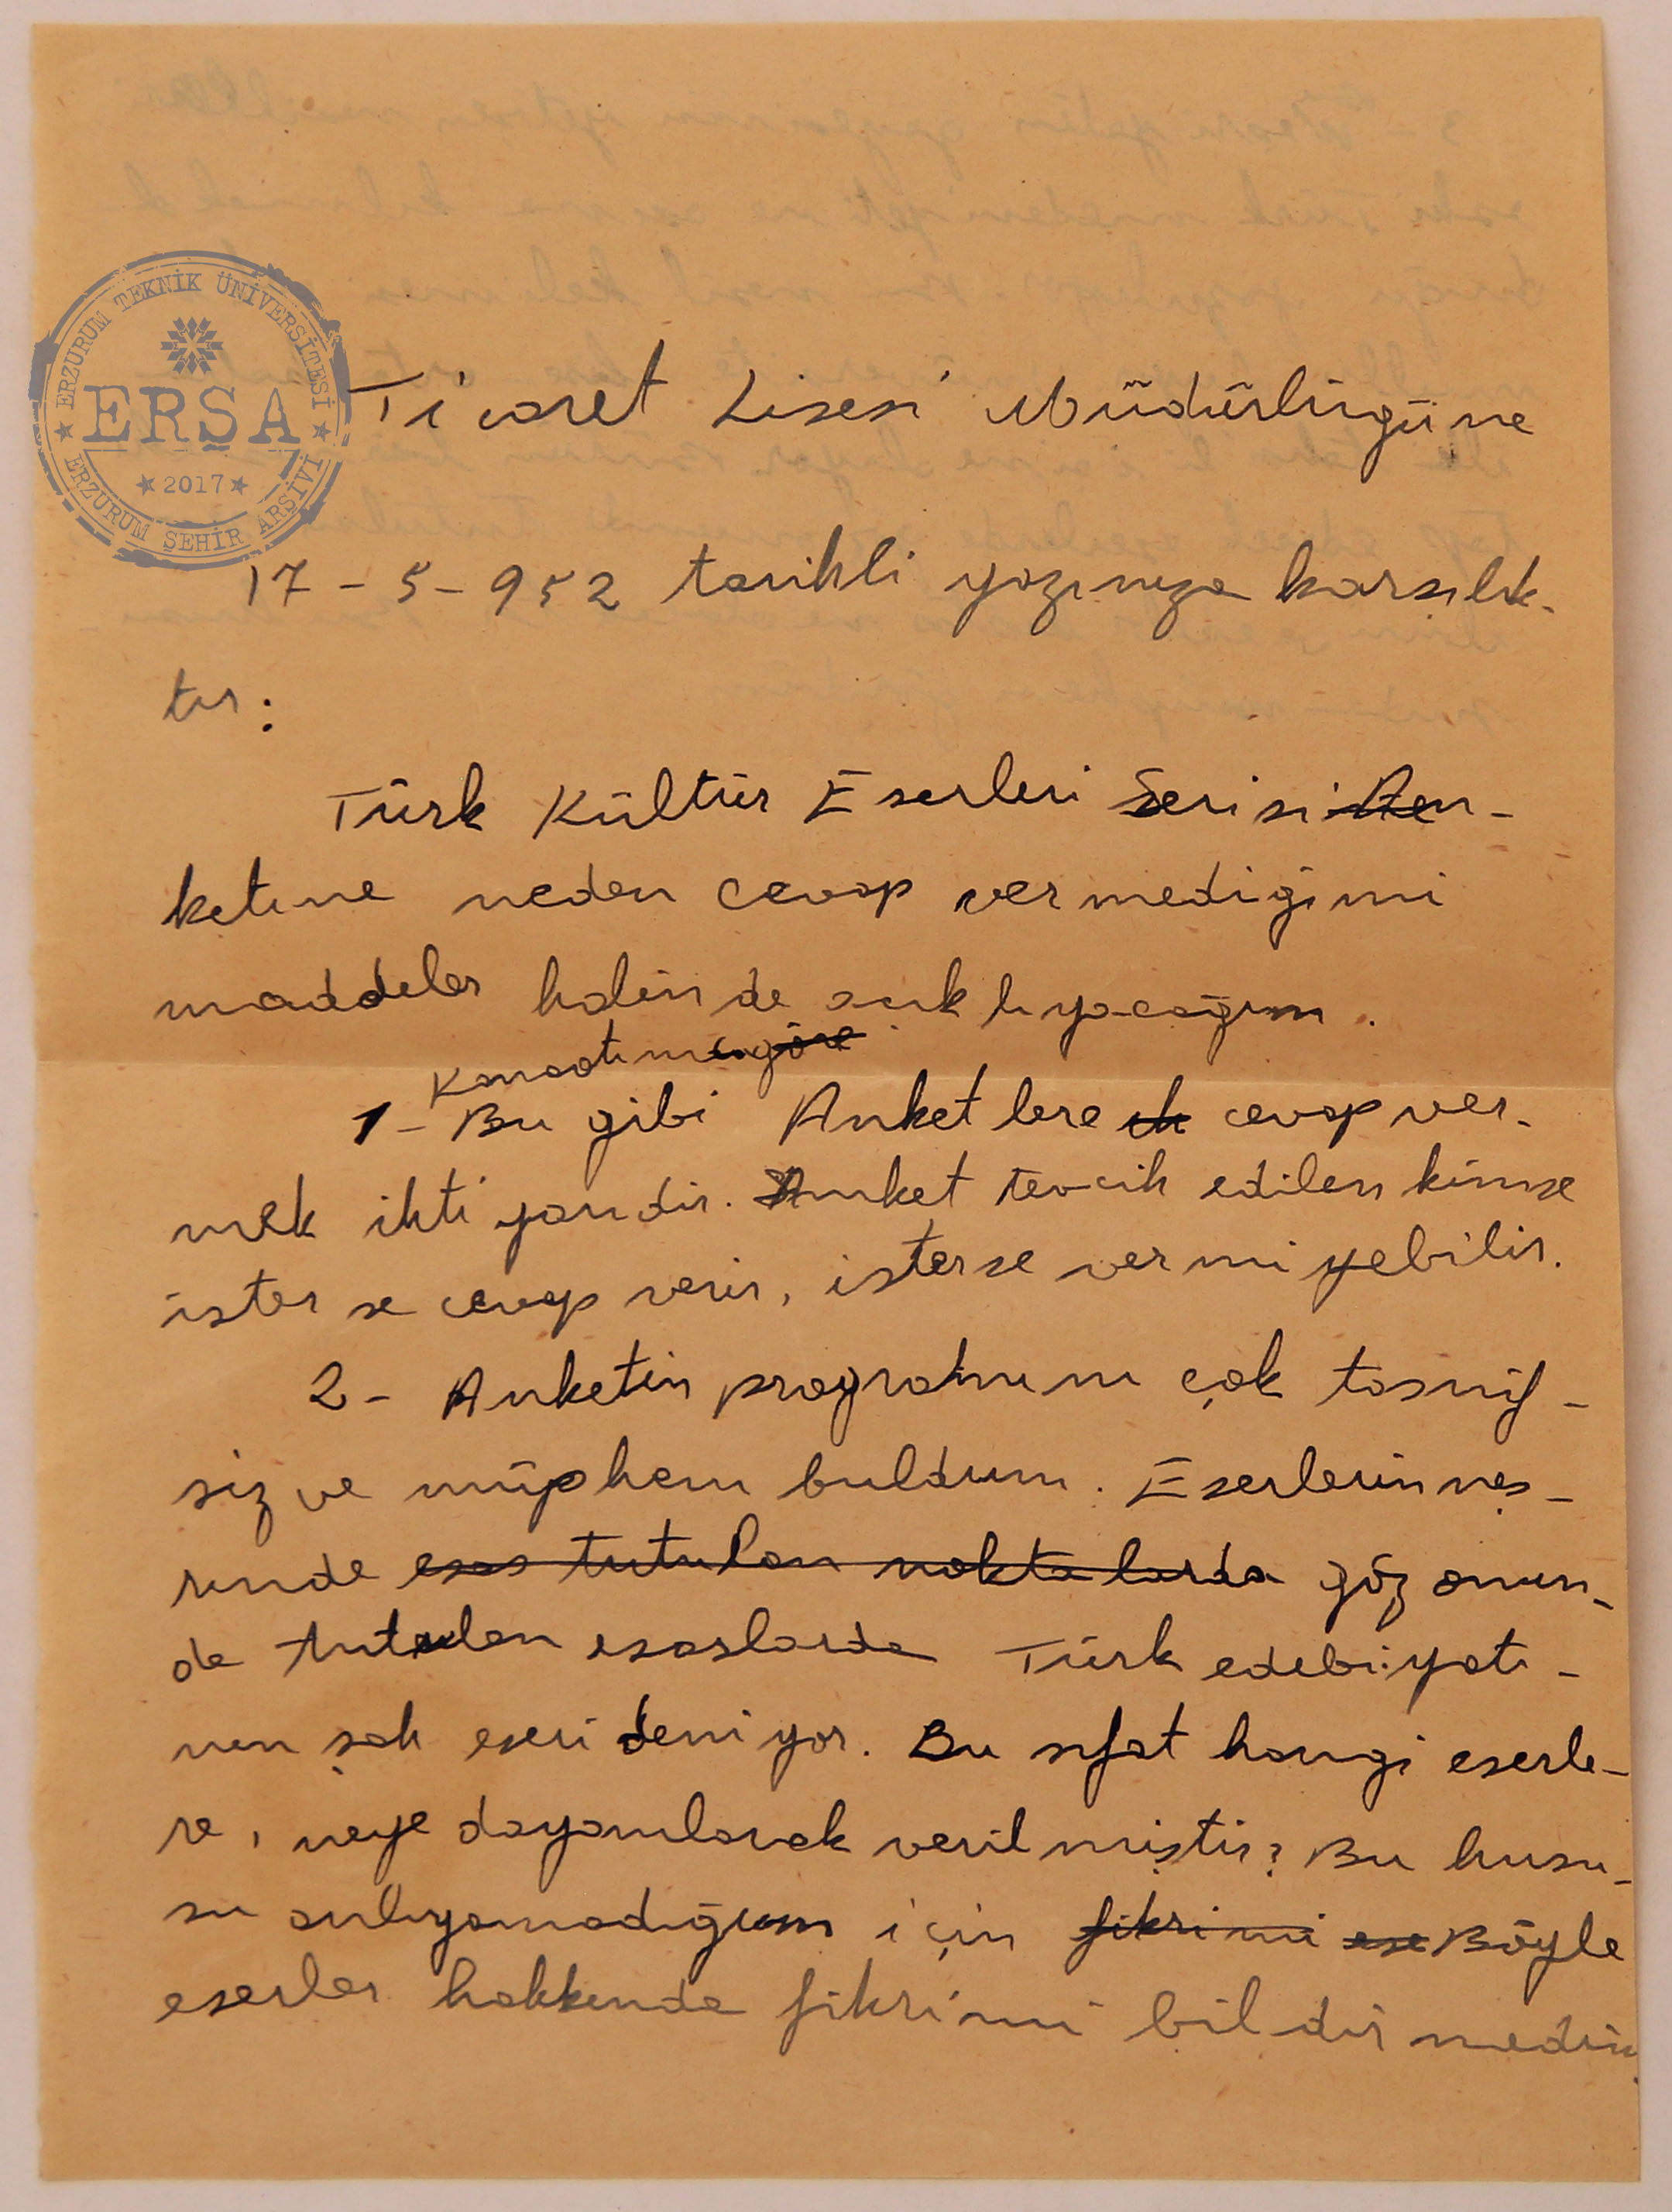 ERZURUM TEKNİK ÜNİVERSİTESİ
ERŞA
2017
ERZURUM ŞEHİR ARŞİVİ
Ticaret Lisesi Müdürlüğüne
17-5-952 tarihli yazınıza karşılık-
tır:
Türk Kültür Eserleri Serisi An-
ketine neden cevap vermediğimi
maddeler halinde açıklıyacağım.
Kanaatımca göre
1- Bu gibi Anketlere cevap ver-
mek ihtiyarıdir. Anket tevcih edilen kimse
isterse cevap verir, isterse vermiyebilir.
2- Anketin programını çok tasnif-
siz ve müphem buldum. Eserlerin neş-
rinde esas tutulan noktalarda göz önün-
de tutulan esaslarda Türk edebiyatı-
nın şah eseri deniyor. Bu sıfat hangi eserle-
re, neye dayanılarak verilmiştir? Bu husu-
su anlıyamadığım için fikrimi ese Böyle
eserler hakkında fikrimi bildirmedim.